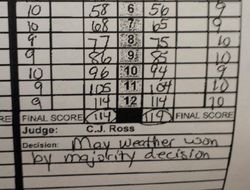 10 58 6 56 9
10 68 7 65 9
9 77 8 75 10
9 86 9 85 10
10 96 10 94 9
9 105 11 104 10
9 114 12 114 10
FINAL SCORE 114 114 FINAL SCORE
Judge: C.J. Ross
Decision: May weather won
by majority decision